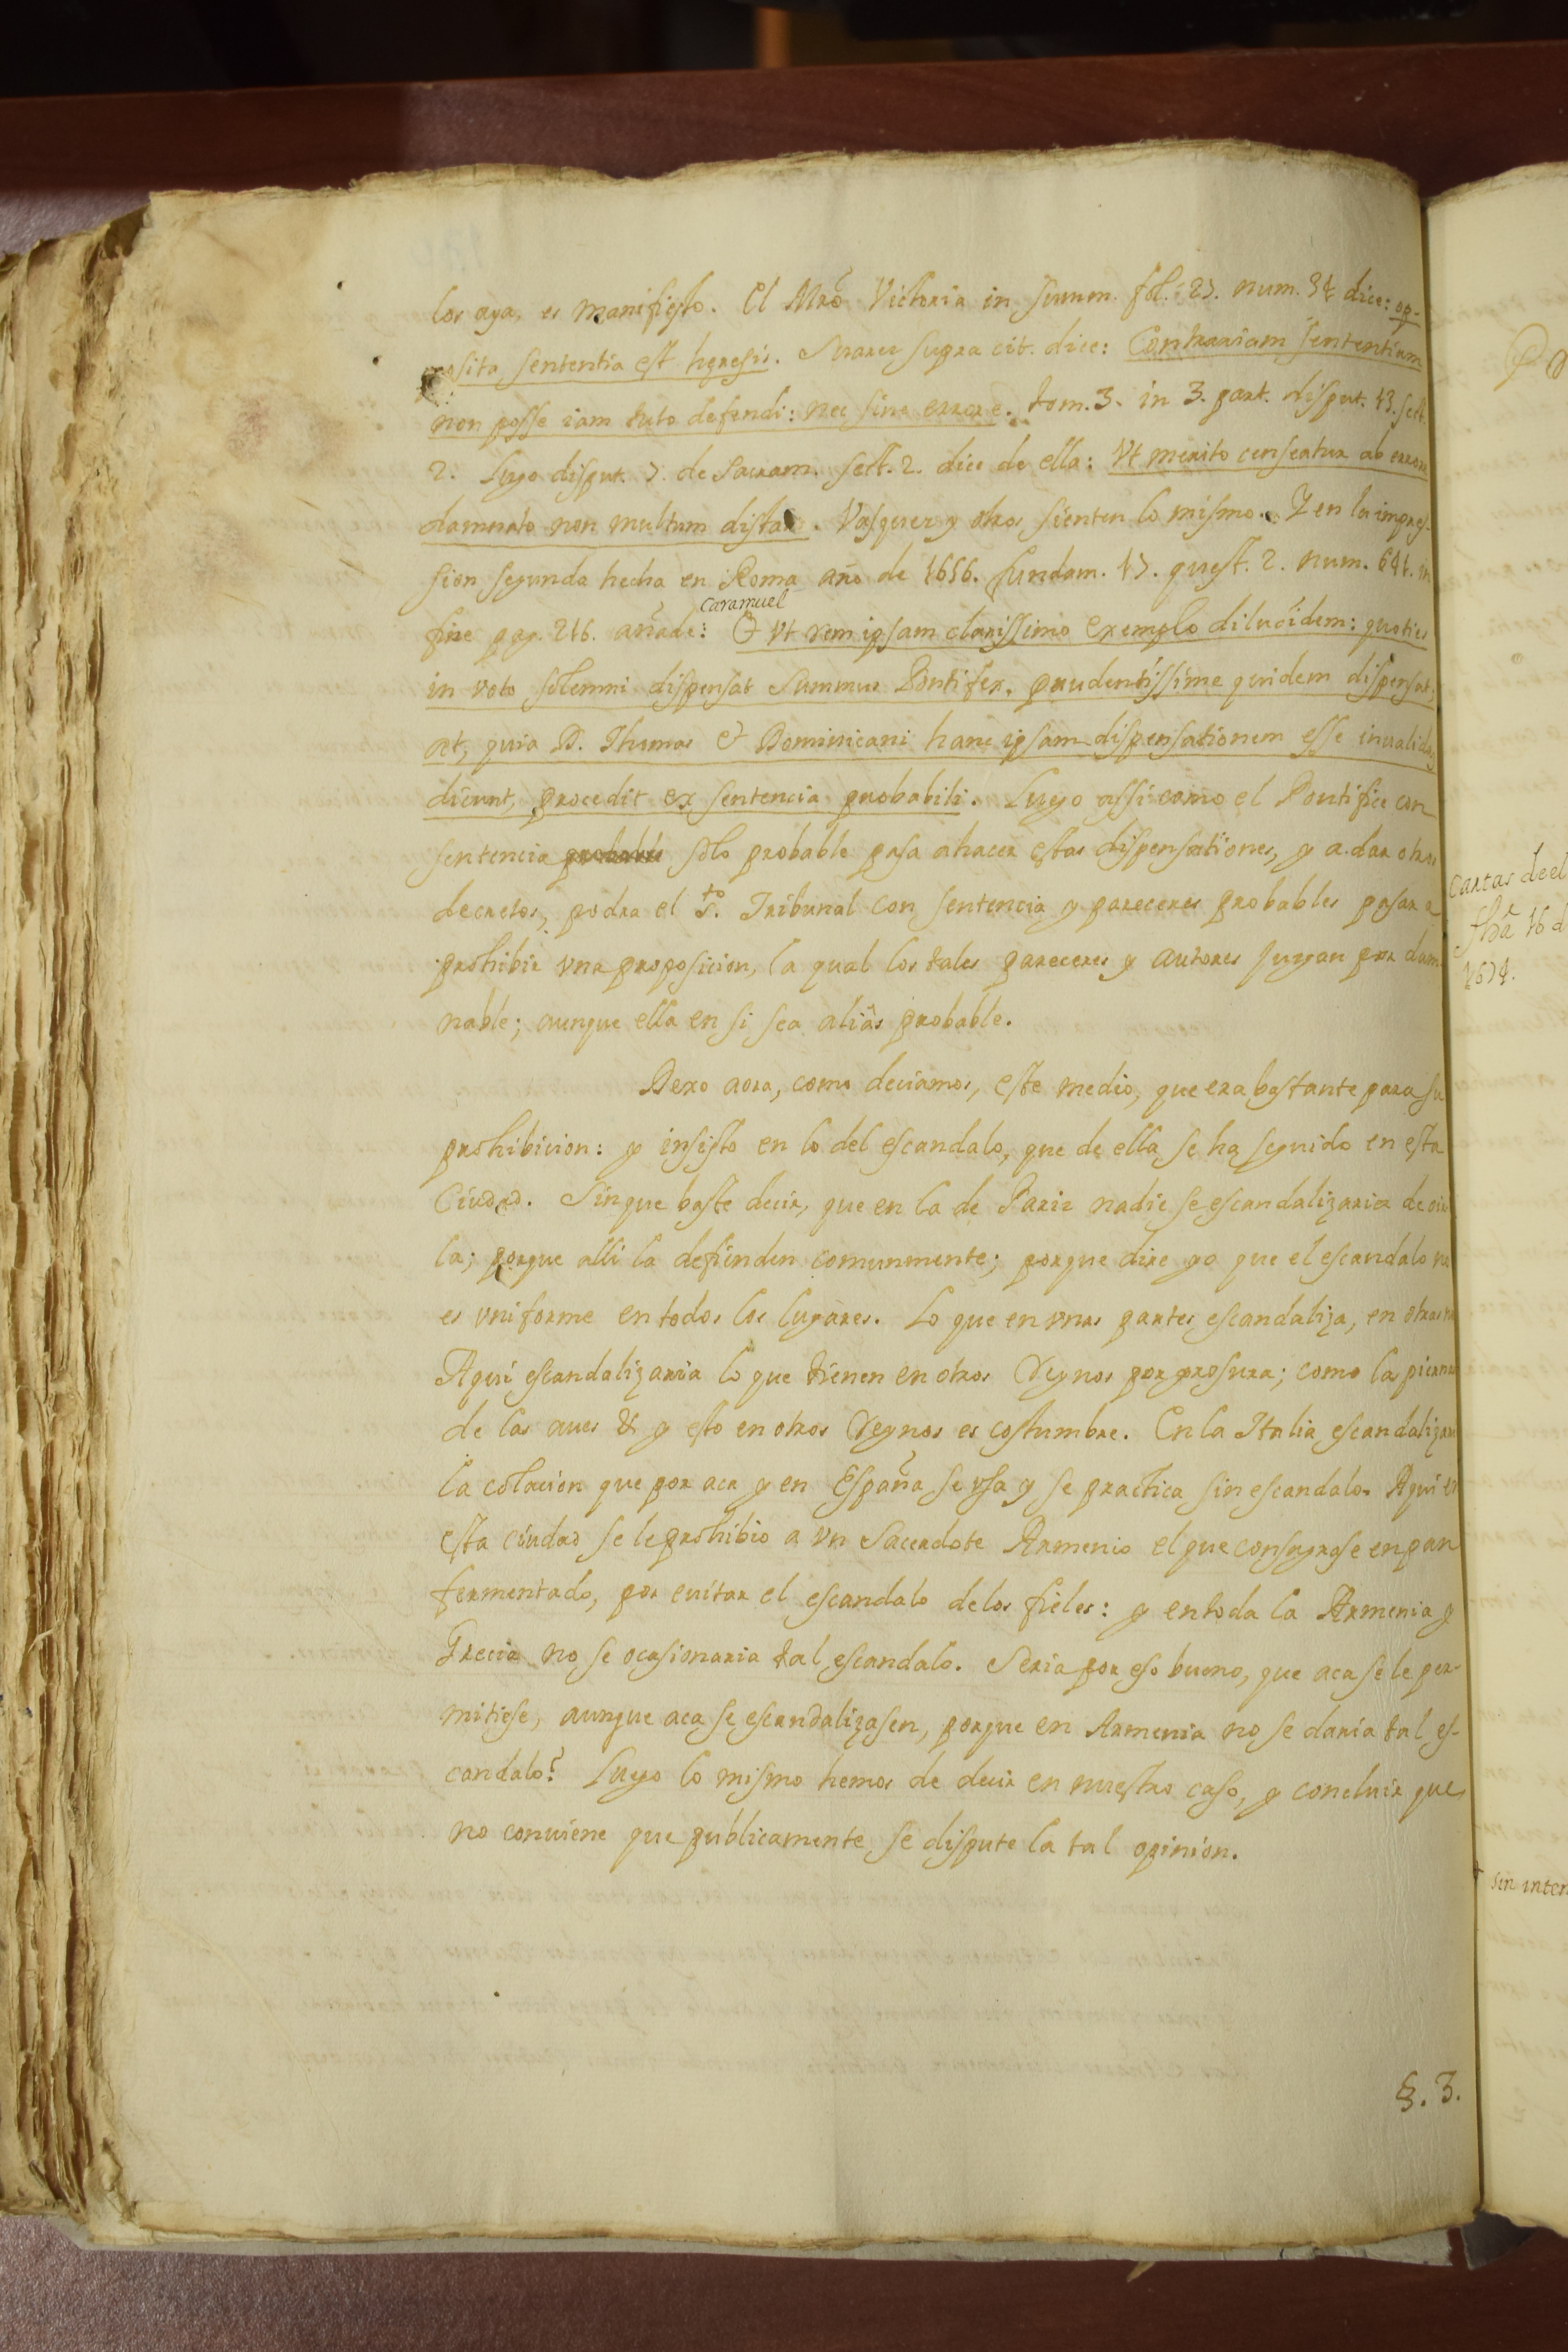 los aya, es manifiesto. El Mrō Victoria in summ. fol. 23. num. 34 dice: op-
posita sententia est heresis. Suarez supra cit. dice: Contrariam sententiam
non posse iam tuto defendi: nec sine errore. tom. 3. in 3. part. disput. 13. sect.
2. Lugo disput. 7. de Sacram. sect. 2. dice de ella: Vt merito censeatur ab errore
damnato non multum distare. Vasquez y otros sienten lo mismo. Y en la impres-
sion segunda hecha en Roma año de 1656. fundam. 17. quest. 2. num. 641. in
caramuel
fine pag. 216. añade: & vt rem ipsam clarissimo exemplo dilucidem: quoties
in voto solemni dispensat Summus Pontifex, prudentissime quidem dispensat,
at, quia D. Thomas & Dominicani hanc ipsam dispensationem esse inualidam
dicunt, procedit ex sentencia probabili. Luego assi como el Pontifice con
sentencia solo probable pasa a hacer estas dispensationes, y a dar otros
decretos, podra el S.to Tribunal con sentencia y pareceres probables pasar a
prohibir vna proposicion, la qual los tales pareceres y autores juzgan por dam
nable; aunque ella en si sea aliàs probable.
Dexo aora, como deciamos, este medio, que era bastante para su
prohibicion: y insisto en lo del escandalo, que de ella se ha seguido en esta
Ciudad. Sin que baste decir, que en la de Paris nadie se escandalizaria de oir
la; porque alli la defienden comunmente; porque dire yo que el escandalo no
es vniforme en todos los lugares. Lo que en vnas partes escandaliza, en otras no
Aqui escandalizaria lo que tienen en otros Reynos por grosura; como las piernas
de las aues &c y esto en otros Reynos es costumbre. En la Italia escandalizara
la colacion que por aca y en España se vsa y se practica sin escandalo. Aqui en
esta ciudad se le prohibio a vn Sacerdote Armenio el que consagrase en pan
fermentado, por euitar el escandalo de los fieles: y en toda la Armenia y
Grecia no se ocasionaria tal escandalo. Seria por eso bueno, que aca se le per-
mitiese, aunque aca se escandalizasen, porque en Armenia no se daria tal es-
candalo? Luego lo mismo hemos de decir en nuestro caso, y concluir que
no conuiene que publicamente se dispute la tal opinion.
§. 3.
Cartas de el
fhā 16 d
1674.
sin inter